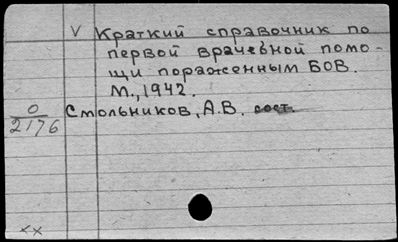 V Краткий справочник по
первой врачебной помо-
щи пораженным БОВ.
М., 1942.
О
2176
Смольников, А.В. сост.
хх